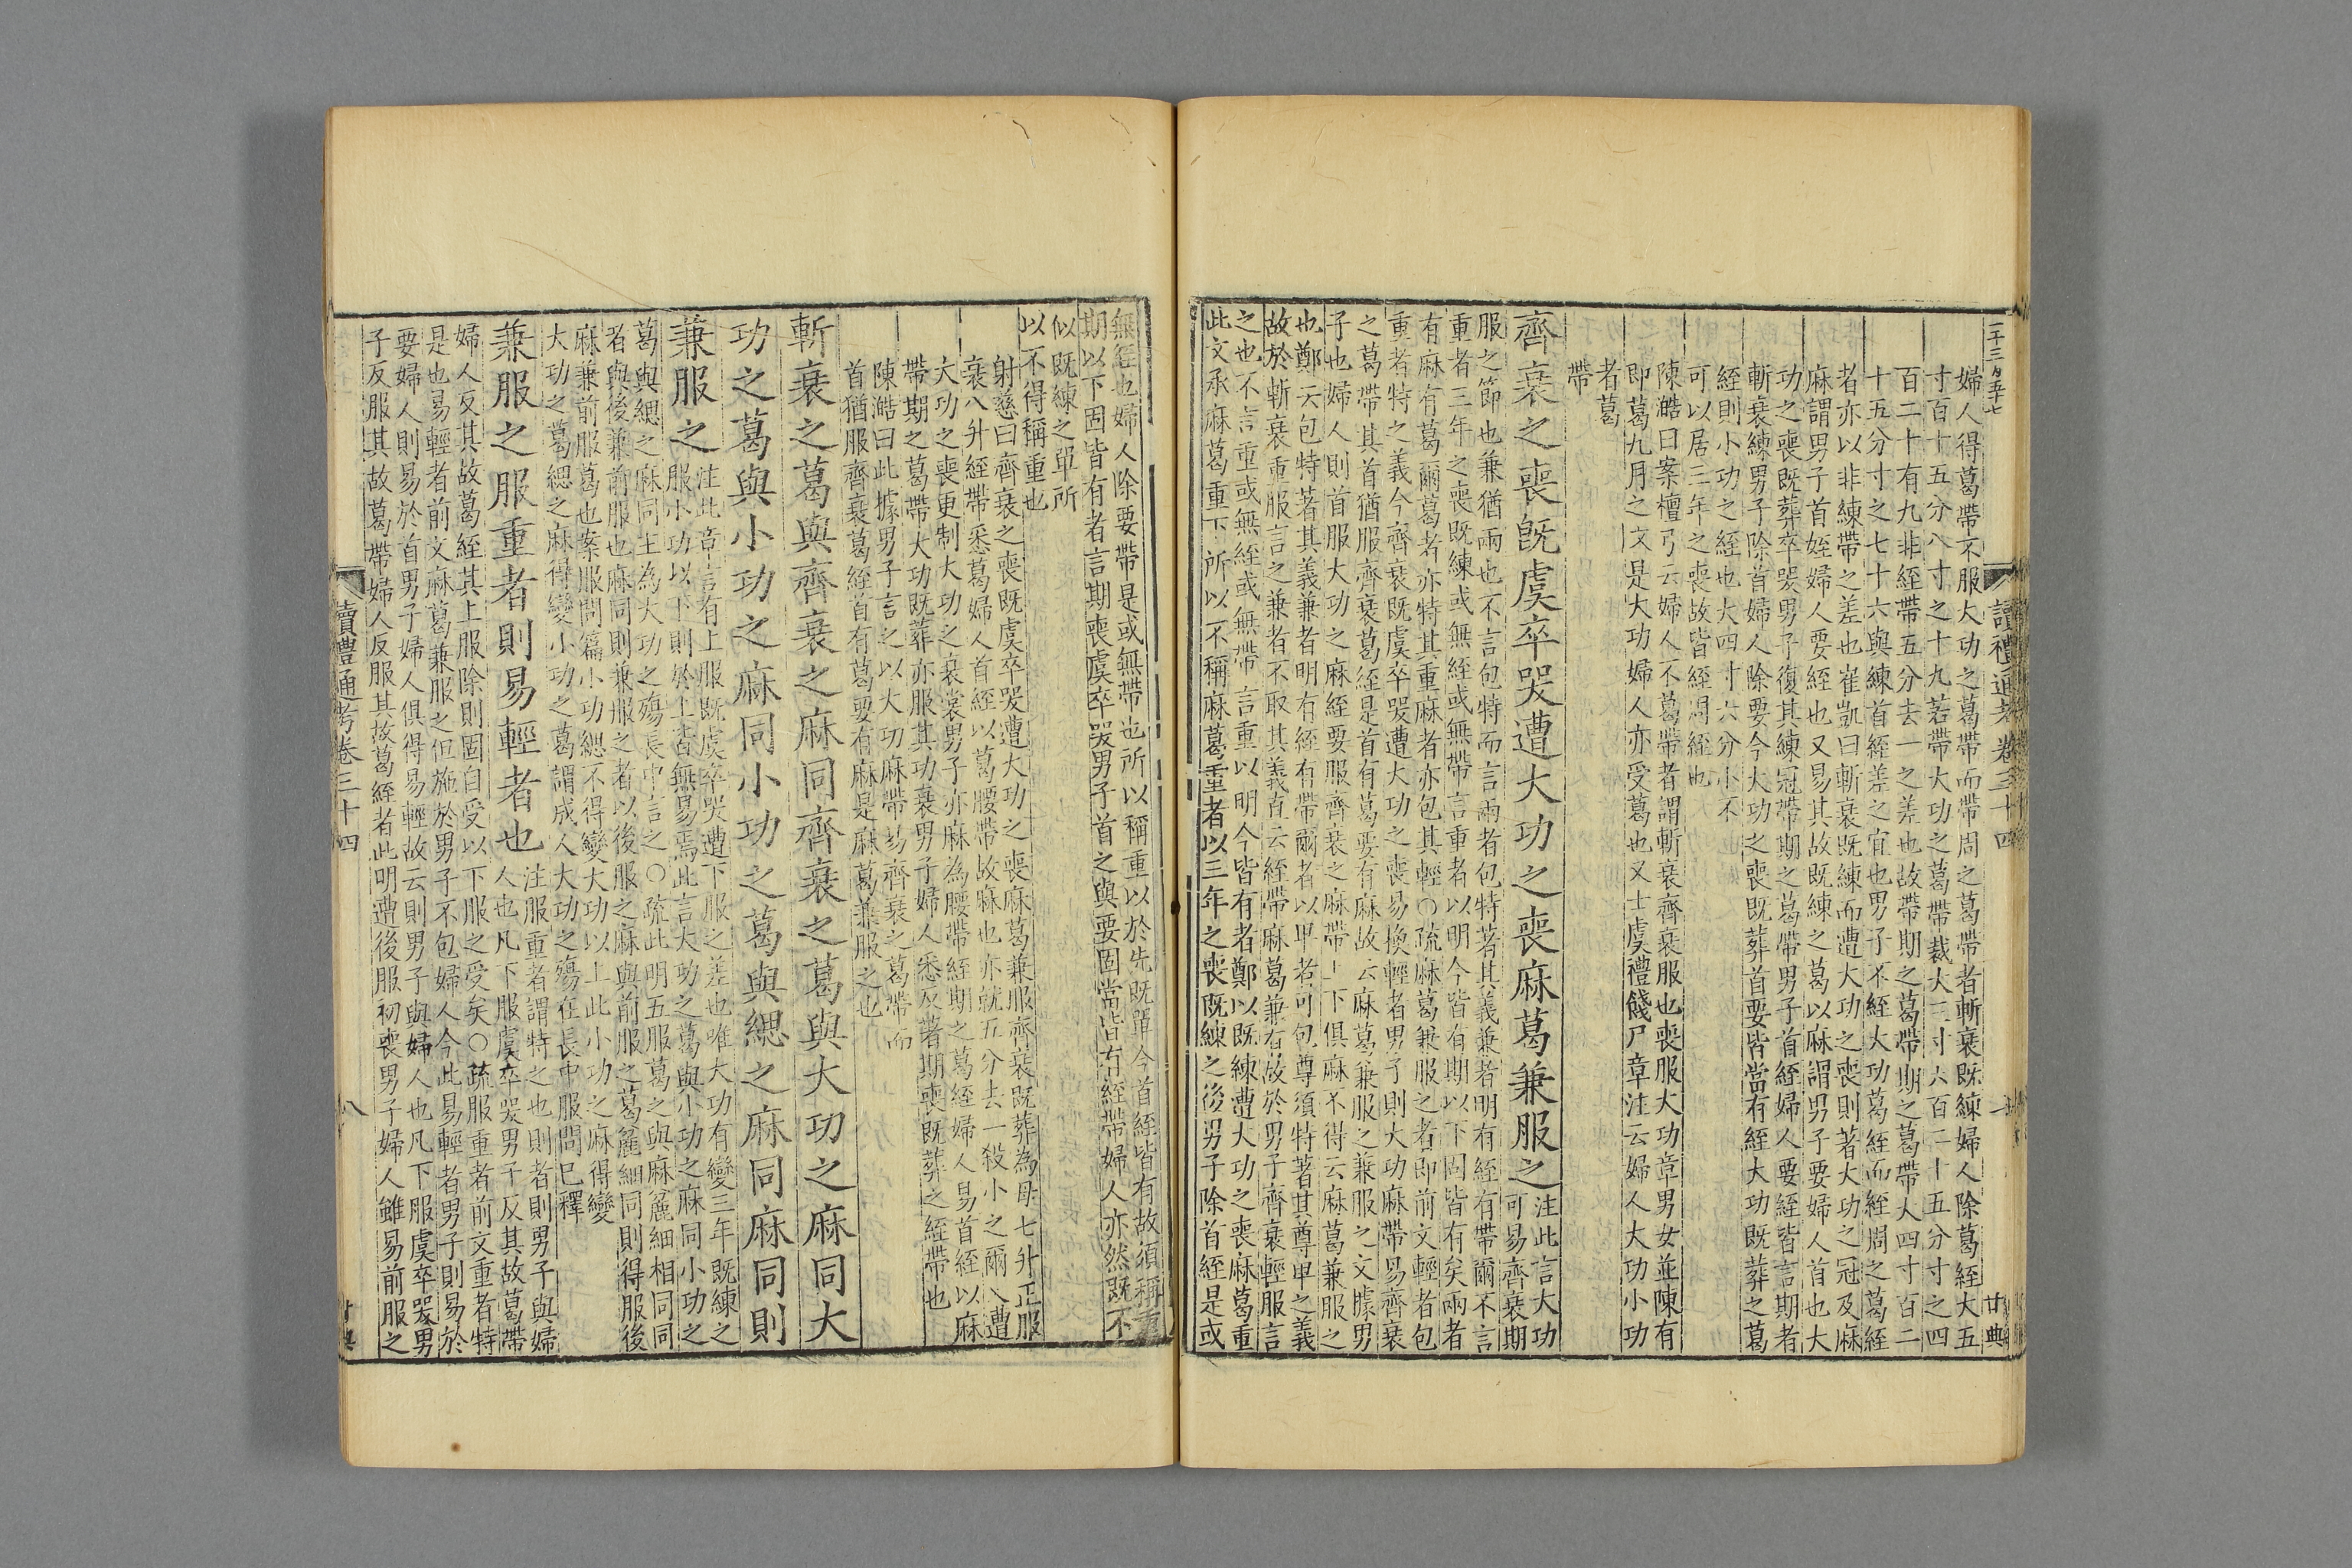 二千三百五十七
讀禮通考卷三十四
廿典
婦人得葛帶不服大功之葛帶而帶周之葛帶者斬衰既練婦人除葛絰大五
寸百十五分八寸之十九若帶大功之葛帶裁大三寸六百二十五分寸之四
百二十有九非絰帶五分去一之差也故帶期之葛帶期之葛帶大四寸百二
十五分寸之七十六與練首絰差之宜也男子不絰大功葛絰而絰周之葛絰
者亦以非練帶之差也崔凱曰斬衰既練而遭大功之喪則著大功之冠及麻
麻謂男子首絰婦人要絰也又易其故既練之葛以麻謂男子要婦人首也大
功之喪既葬卒哭男子復其練冠帶期之葛帶男子首絰婦人要絰皆言期者
斬衰練男子除首婦人除要今大功之喪既葬首要皆當有絰大功既葬之葛
絰則小功之絰也大四寸六分小不
可以居三年之喪故皆絰周絰也
陳澔曰案檀弓云婦人不葛帶者謂斬衰齊衰服也喪服大功章男女並陳有
即葛九月之文是大功婦人亦受葛也又士虞禮餞尸章注云婦人大功小功
者葛
帶
齊衰之喪旣虞卒哭遭大功之喪麻葛兼服之
注此言大功
可易齊衰期
服之節也兼猶兩也不言包特而言兩者包特著其義兼者明有絰有帶爾不言
重者三年之喪既練或無絰或無帶言重者以明今皆有期以下固皆有矣兩者
有麻有葛爾葛者亦特其重麻者亦包其輕○疏麻葛兼服之者即前文輕者包
重者特之義今齊衰既虞卒哭遭大功之喪易換輕者男子則大功麻帶易齊衰
之葛帶其首猶服齊衰葛絰是首有葛要有麻故云麻葛兼服之兼服之文據男
子也婦人則首服大功之麻絰要服齊衰之麻帶上下俱麻不得云麻葛兼服之
也鄭云包特著其義兼者明有絰有帶爾者以卑者可包尊須特著其尊卑之義
故於斬衰重服言之兼者不取其義直云絰帶麻葛兼有故於男子齊衰輕服言
之也不言重或無絰或無帶言重以明今皆有者鄭以既練遭大功之喪麻葛重
此文承麻葛重下所以不稱麻葛重者以三年之喪既練之後男子除首絰是或
無絰也婦人除要帶是或無帶也所以稱重以於先既單今首絰皆有故須稱重
期以下固皆有者言期喪虞卒哭男子首之與要固當皆有絰帶婦人亦然既不
似既練之單所
以不得稱重也
射慈曰齊衰之喪既虞卒哭遭大功之喪麻葛兼服齊衰既葬為母七升正服
衰八升絰帶悉葛婦人首絰以葛腰帶故麻也亦就五分去一殺小之爾又遭
大功之喪更制大功之衰裳男子亦麻為腰帶絰期之葛絰婦人易首絰以麻
帶期之葛帶大功既葬亦服其功衰男子婦人悉反著期喪既葬之絰帶也
陳澔曰此據男子言之以大功麻帶易齊衰之葛帶而
首猶服齊衰葛絰首有葛要有麻是麻葛兼服之也
斬衰之葛與齊衰之麻同齊衰之葛與大功之麻同大
功之葛與小功之麻同小功之葛與緦之麻同麻同則
兼服之
注此章言有上服既虞卒哭遭下服之差也唯大功有變三年既練之
服小功以下則於上皆無易焉此言大功之葛與小功之麻同小功之
葛與緦之麻同主為大功之殤長中言之○疏此明五服葛之與麻麤細相同同
者與後兼前服也麻同則兼服之者以後服之麻與前服之葛麤細同則得服後
麻兼前服葛也案服問篇小功緦不得變大功以上此小功之麻得變
大功之葛緦之麻得變小功之葛謂成人大功之殤在長中服問已釋
兼服之服重者則易輕者也
注服重者謂特之也則者則男子與婦
人也凡下服虞卒哭男子反其故葛帶
婦人反其故葛絰其上服除則固自受以下服之受矣○疏服重者前文重者特
是也易輕者前文麻葛兼服之但施於男子不包婦人今此易輕者男子則易於
要婦人則易於首男子婦人俱得易輕故云則男子與婦人也凡下服虞卒哭男
子反服其故葛帶婦人反服其故葛絰者此明遭後服初喪男子婦人雖易前服之
讀禮通考卷三十四
八